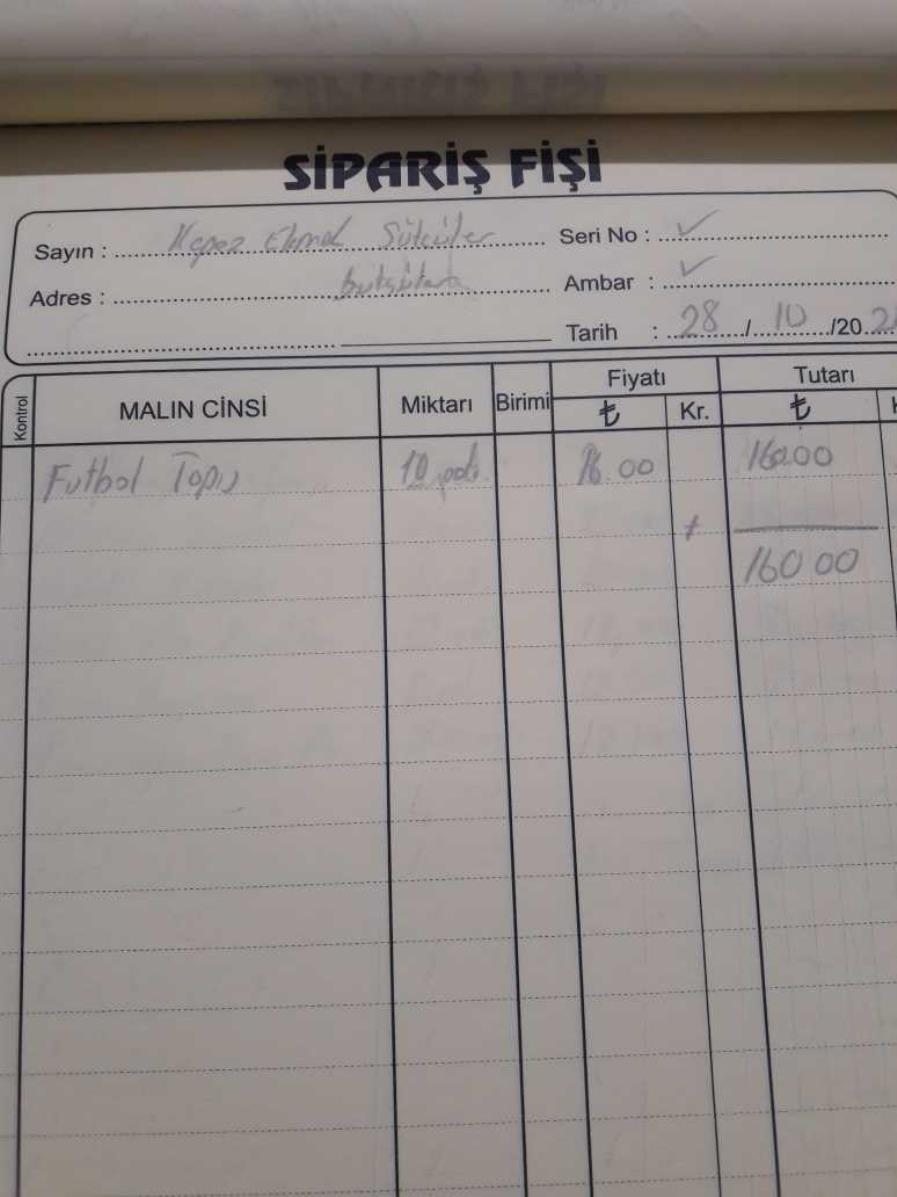 SİPARİŞ FİŞİ
Sayın : Kepez Sütçüler Seri No : ✓
Adres : Ambar : ✓
Tarih : 28 / 10 /20
Kontrol MALIN CİNSİ Miktarı Birimi Fiyatı Tutarı
₺ Kr. ₺
Futbol Topu 10 16.00 160.00
+
160 00